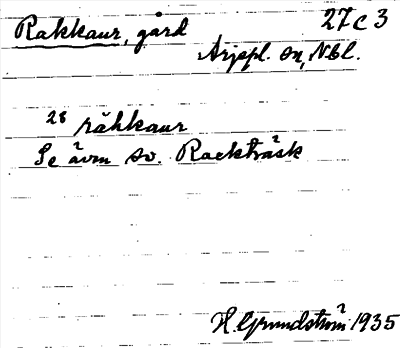 Rakkaur, gård 27c3
Arjepl. sn, Nbl.
28 råhkaur
Se även sv. Rackträsk
H. Grundström 1935